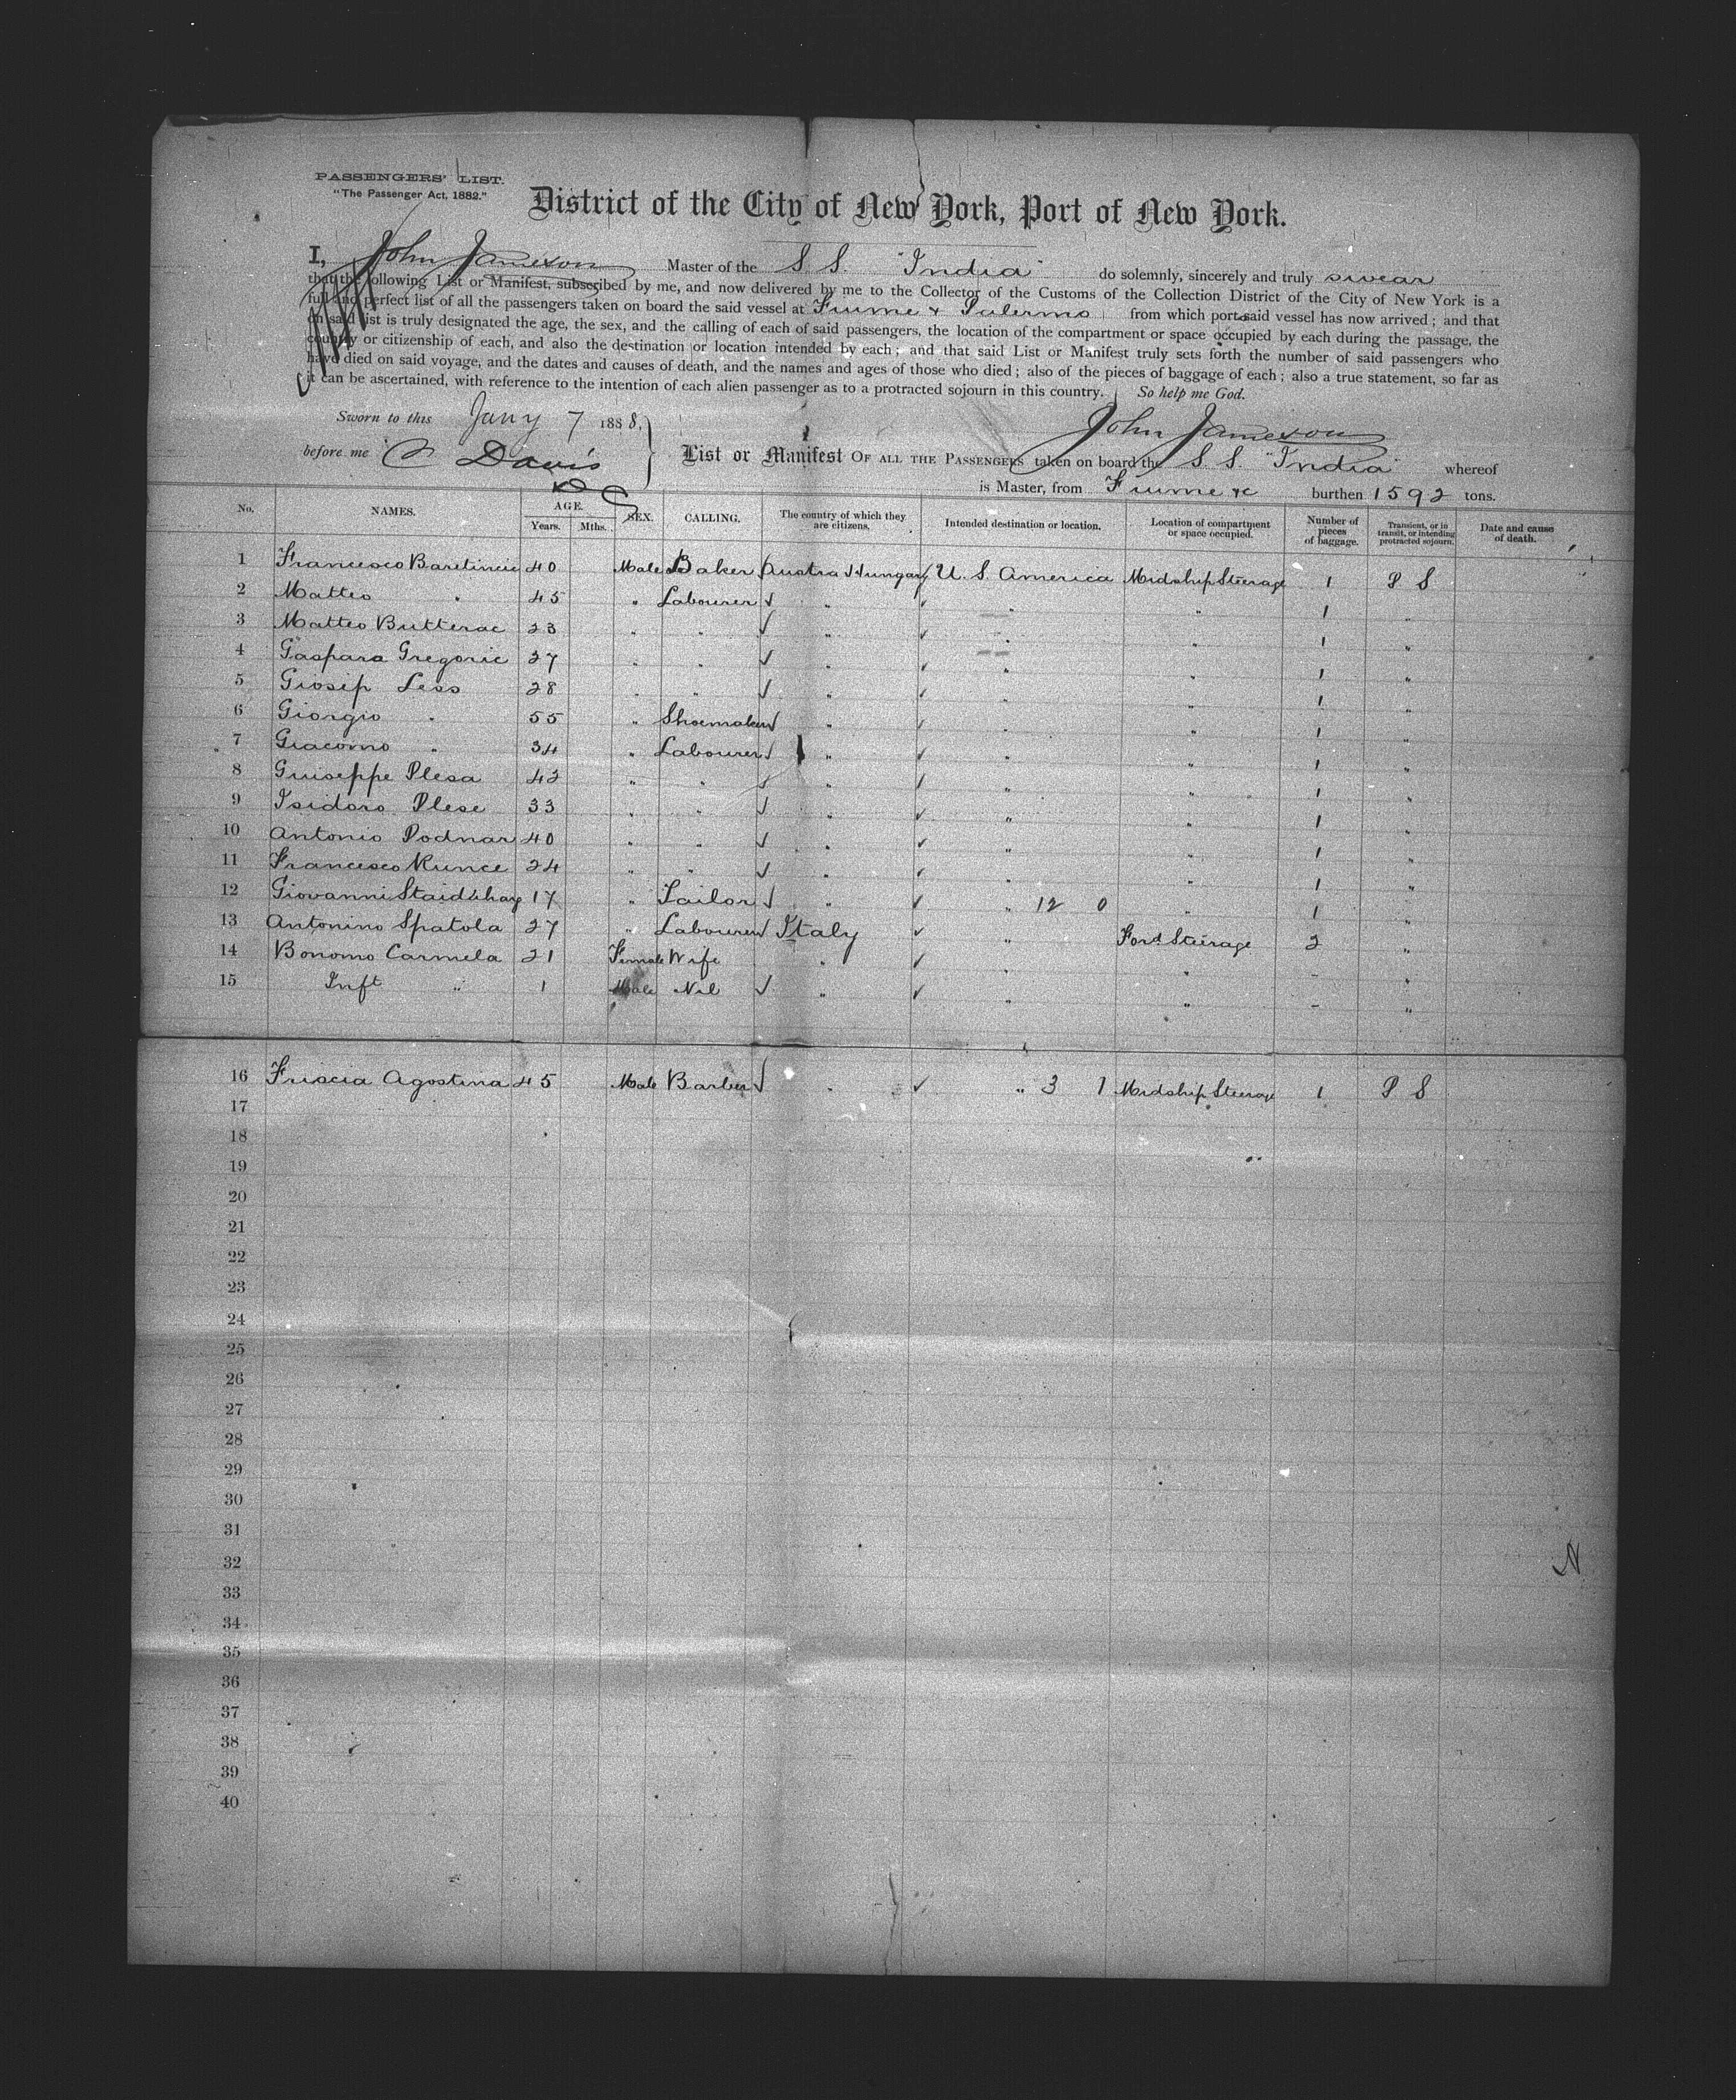 PASSENGERS' LIST.
"The Passenger Act, 1882."
District of the City of New York, Port of New York.
I, John Jameson Master of the S. S. "India" do solemnly, sincerely and truly swear
that the following List or Manifest, subscribed by me, and now delivered by me to the Collector of the Customs of the Collection District of the City of New York is a
full and perfect list of all the passengers taken on board the said vessel at Fiume & Palermo from which ports said vessel has now arrived; and that
on said list is truly designated the age, the sex, and the calling of each of said passengers, the location of the compartment or space occupied by each during the passage, the
country or citizenship of each, and also the destination or location intended by each; and that said List or Manifest truly sets forth the number of said passengers who
have died on said voyage, and the dates and causes of death, and the names and ages of those who died; also of the pieces of baggage of each; also a true statement, so far as
it can be ascertained, with reference to the intention of each alien passenger as to a protracted sojourn in this country. So help me God.
Sworn to this Jany 7 1888,
John Jameson
before me C Davis
List or Manifest OF ALL THE PASSENGERS taken on board the S. S. "India" whereof
is Master, from Fiume &c burthen 1592 tons.
No. NAMES. AGE. Years. Mths. SEX. CALLING. The country of which they are citizens. Intended destination or location. Location of compartment or space occupied. Number of pieces of baggage. Transient, or in transit, or intending protracted sojourn. Date and cause of death.
1 Francesco Baretincic 40 Male Baker Austra Hungary U. S. America Midship Steerage 1 P S
2 Matteo " 45 " Labourer " " " 1 "
3 Matteo Butterac 23 " " " " " 1 "
4 Gaspara Gregoric 27 " " " " " 1 "
5 Giosip Less 28 " " " " " 1 "
6 Giorgio " 55 " Shoemaker " " " 1 "
7 Giacomo " 34 " Labourer " " " 1 "
8 Guiseppe Plesa 42 " " " " " 1 "
9 Isidoro Plese 33 " " " " " 1 "
10 Antonio Podnar 40 " " " " " 1 "
11 Francesco Kunce 24 " " " " " 1 "
12 Giovanni 17 " Tailor " " 12 0 " 1 "
13 Antonino Spatola 27 " Labourer Italy " Ford Steerage 2 "
14 Bonomo Carmela 21 Female Wife " " " - "
15 Inft " 1 Male Nil " " " - "
16 Friscia Agostina 45 Male Barber " " 3 1 Midship Steerage 1 P S
17
18
19
20
21
22
23
24
25
26
27
28
29
30
31
32
N
33
34
35
36
37
38
39
40